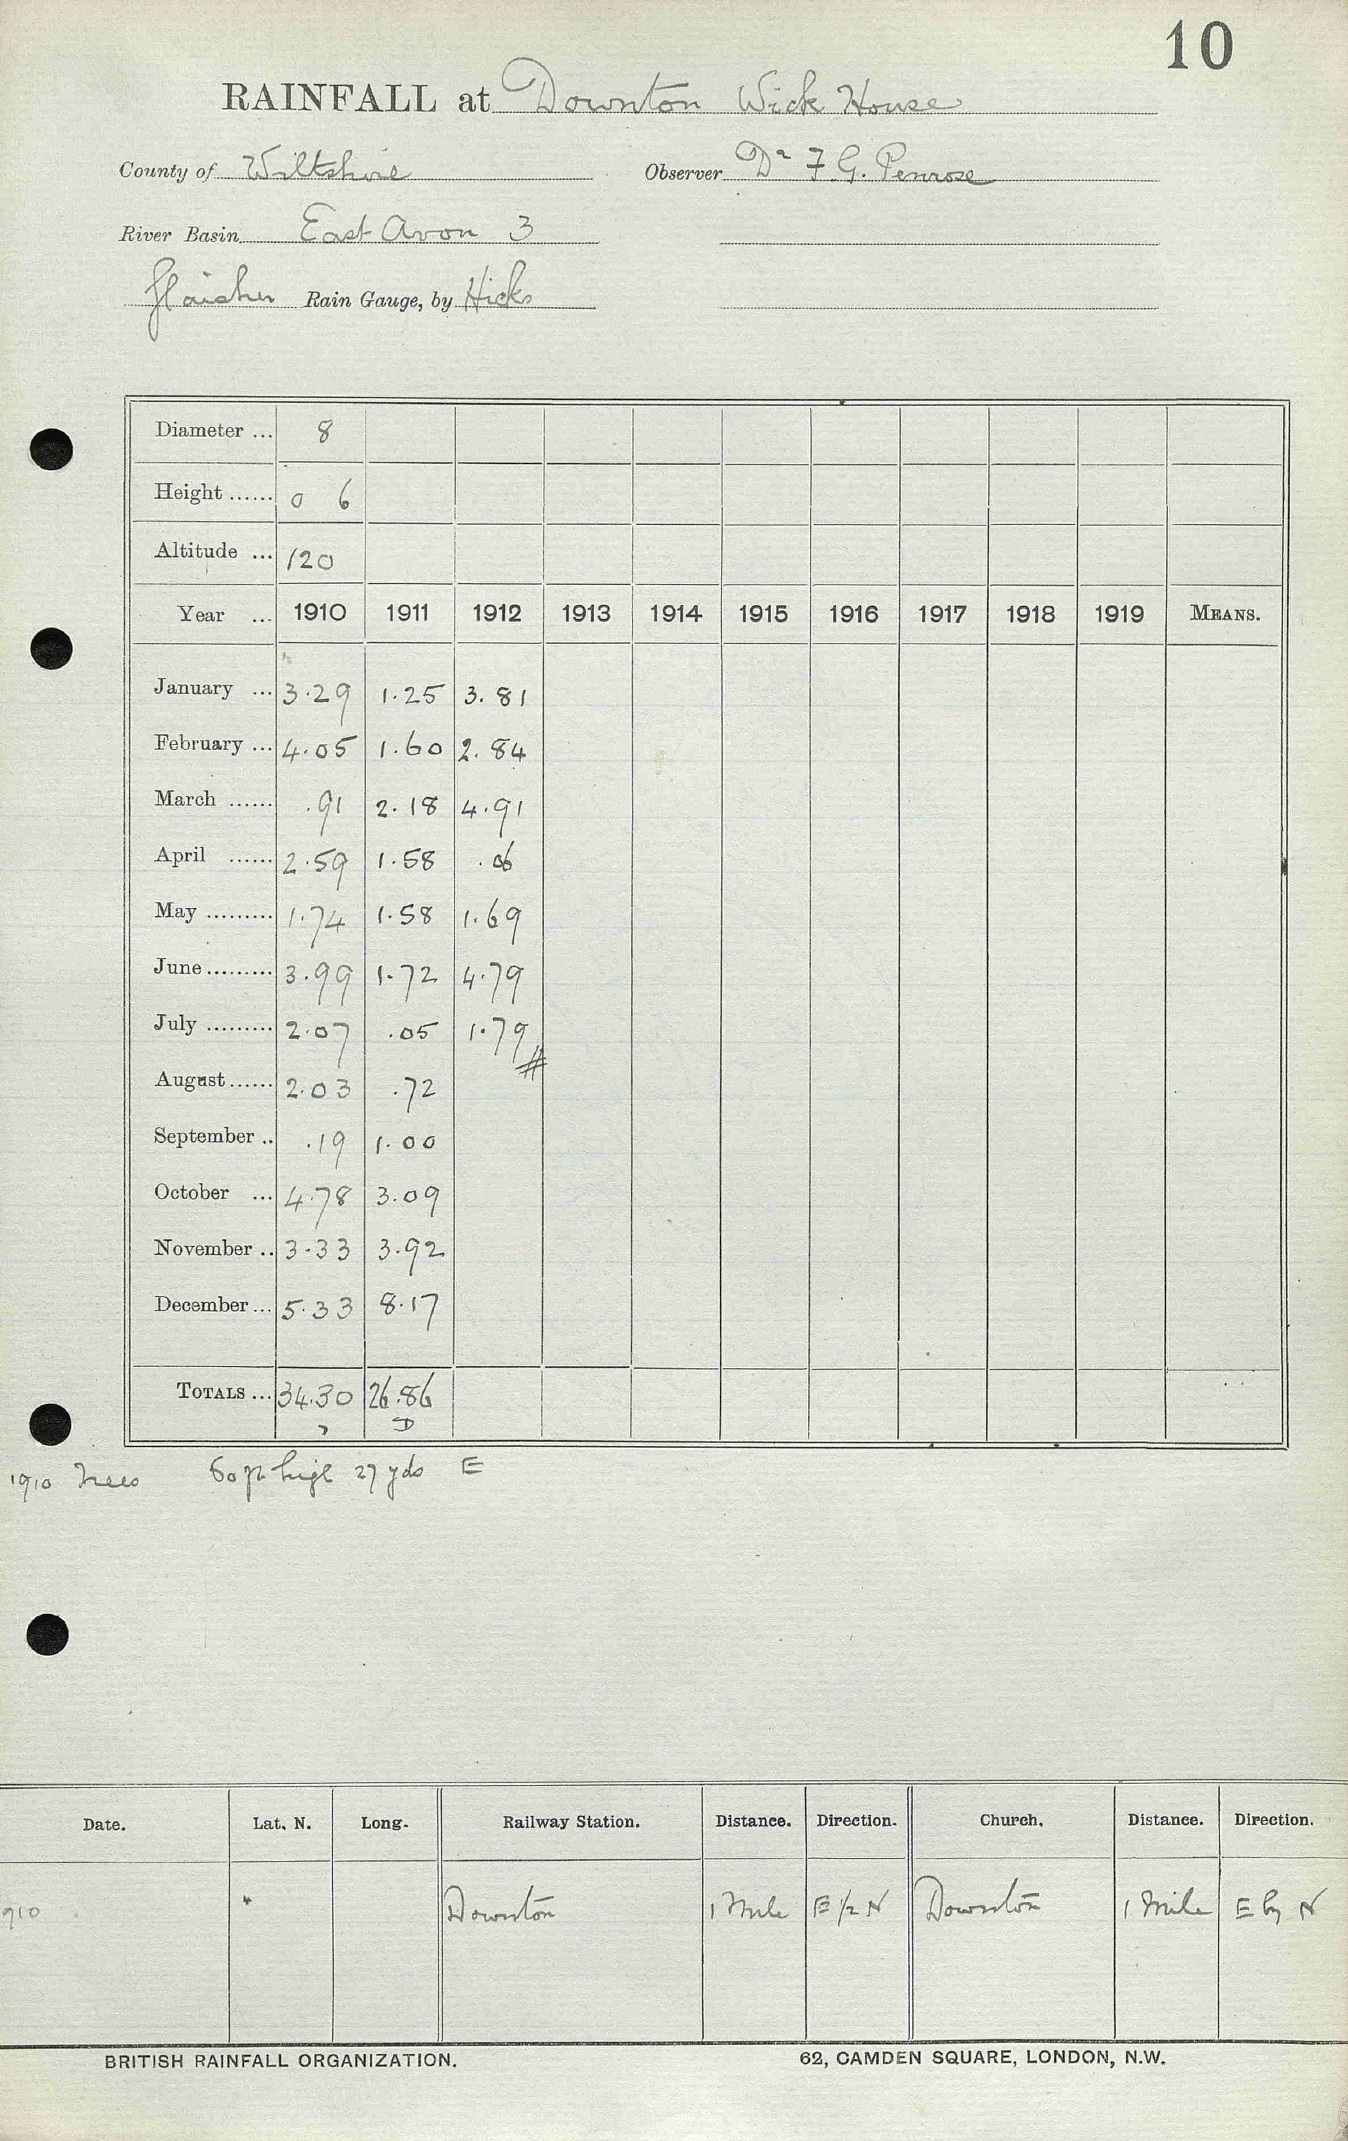 10
RAINFALL at Downton Wick House
County of Wiltshire Observer Dr F G. Penrose
River Basin East Avon 3
Glaisher Rain Gauge, by Hicks
Diameter ... 8
Height ...... 0 6
Altitude ... 120
Year ... 1910 1911 1912 1913 1914 1915 1916 1917 1918 1919 MEANS.
January ... 3.29 1.25 3.81
February ... 4.05 1.60 2.84
March ...... .91 2.18 4.91
April ...... 2.59 1.58 .06
May ......... 1.74 1.58 1.69
June ......... 3.99 1.72 4.79
July ......... 2.07 .05 1.79 #
August ...... 2.03 .72
September .. .19 1.00
October ... 4.78 3.09
November .. 3.33 3.92
December ... 5.33 8.17
TOTALS ... 34.30 26.86
D
1910 Trees 60 ft high 27 yds E
Date. Lat. N. Long. Railway Station. Distance. Direction. Church. Distance. Direction.
910 Downton 1 Mile E ½ N Downton 1 Mile E by N
BRITISH RAINFALL ORGANIZATION. 62, CAMDEN SQUARE, LONDON, N.W.